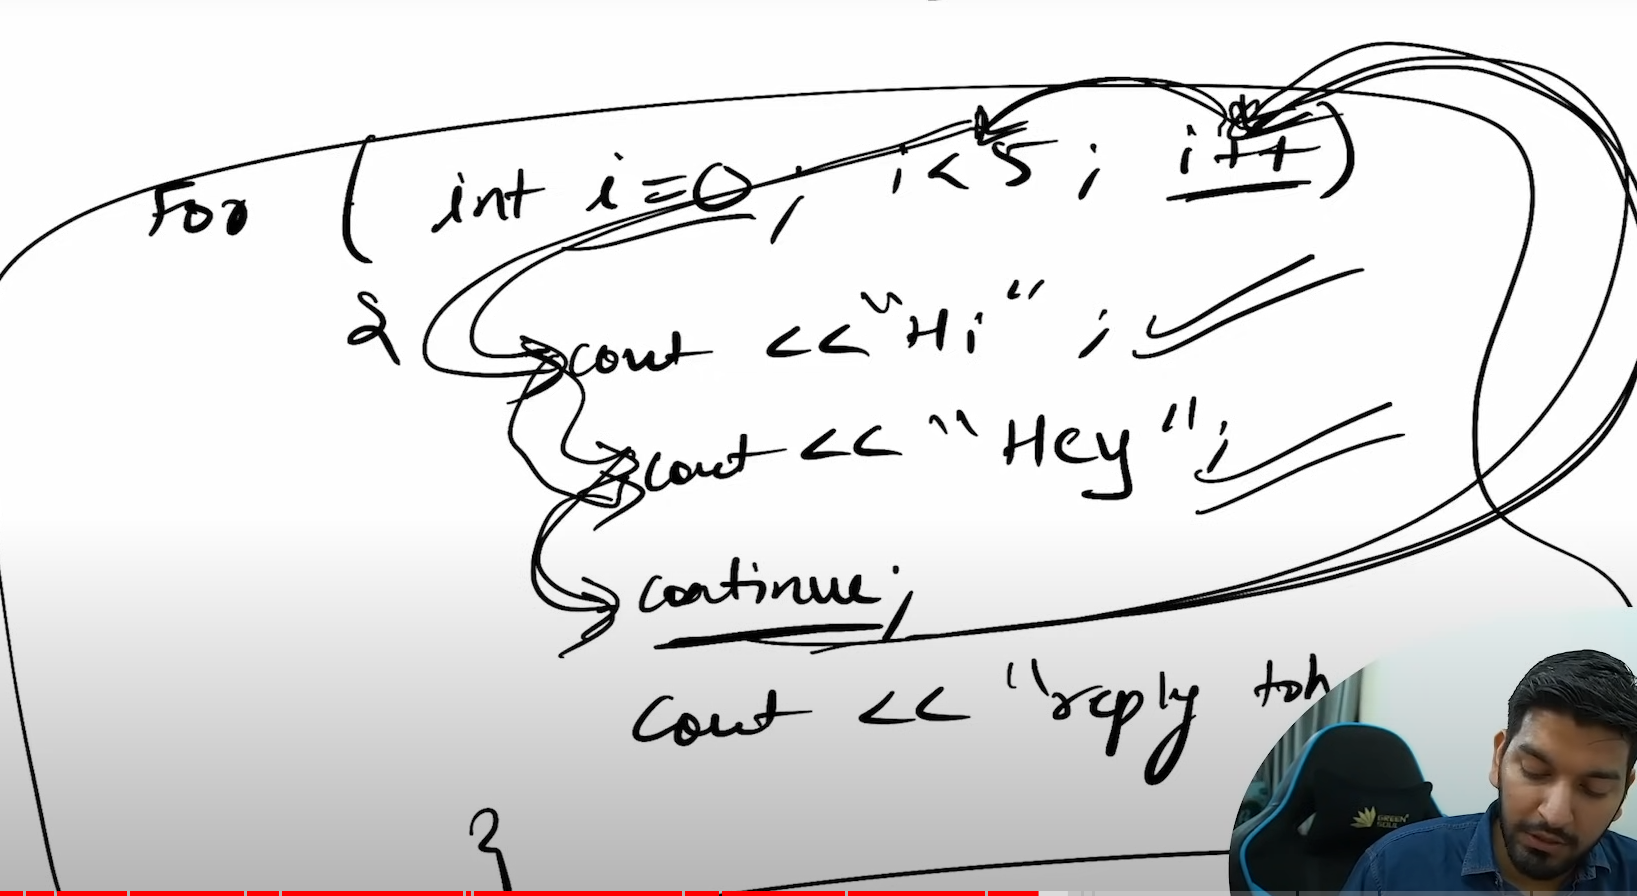 For ( int i=0 ; i<5 ; i++ )
{
cout << "Hi" ;
cout << "Hey" ;
continue;
cout << "reply toh
}
GREEN SOUL